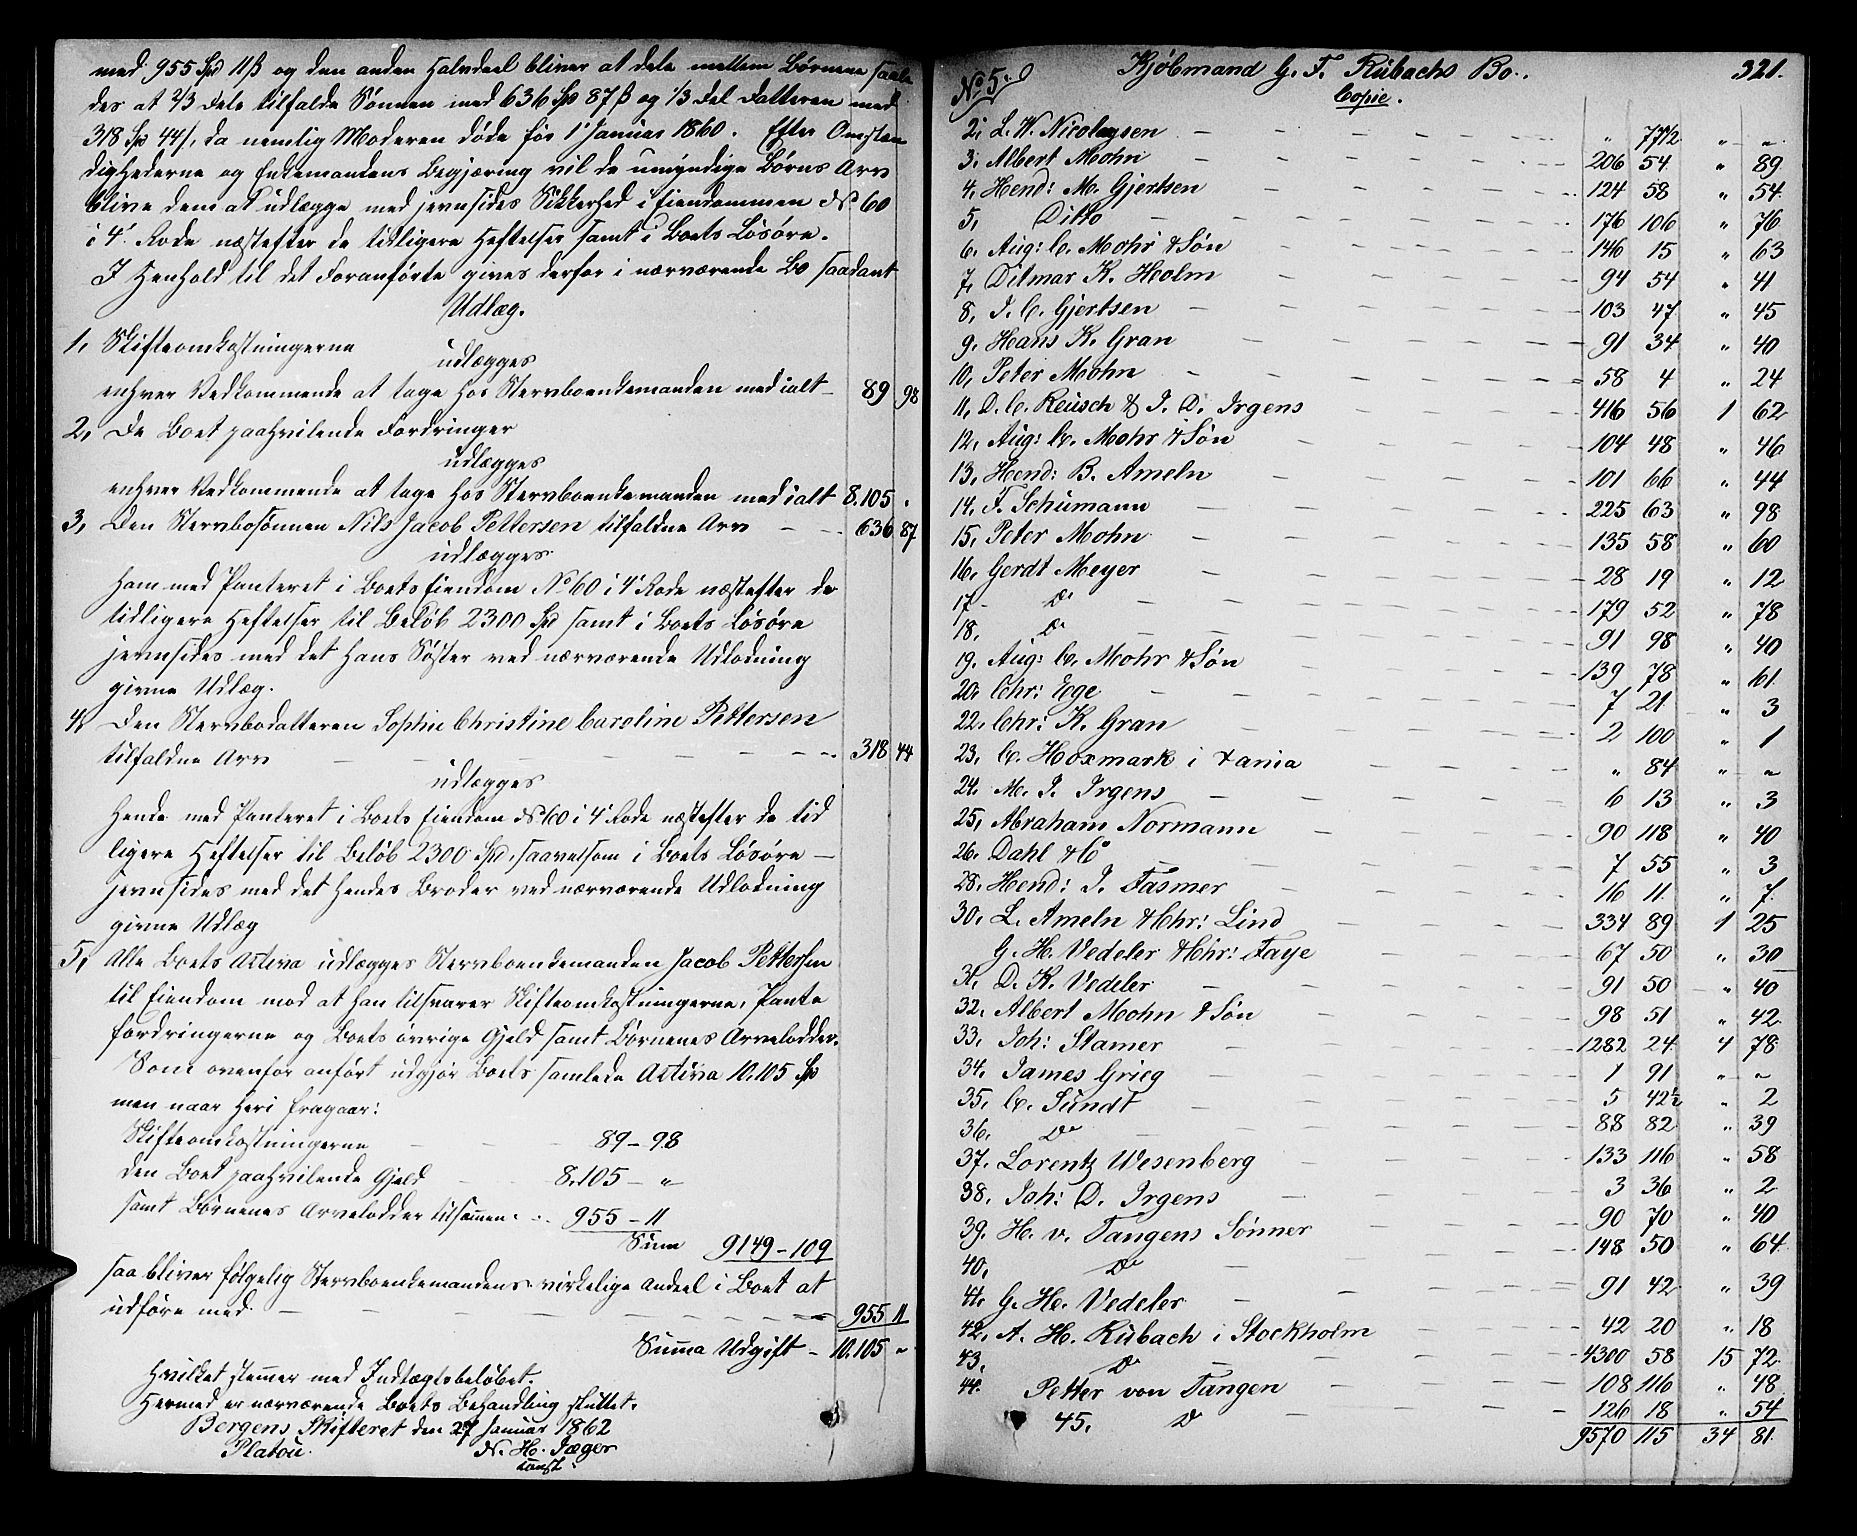 med 955 Spd 11 ß og den anden Halvdeel bliver at dele mellem Børnene saale
des at 2/3 Dele tilfalde Sønnen med 636 Spd 87 ß og 1/3 Del Datteren med
318 Spd 44 ß, da nemlig Moderen døde før 1 Januar 1860. Efter Omsten
dighederne og Enkemandens Begjæring vil de umyndige Børns Arv
blive dem at udlægge med jevnsides Sikkerhed i Eiendommen No 60
i 4' Rode næstefter de tidligere Heftelser samt i Boets Løsøre.
I Henhold til det Foranførte gives derfor i nærværende Bo saadant
Udlæg.
1, Skifteomkostningerne
udlægges
enhver Vedkommende at tage hos Stervboenkemanden med ialt - 89 98
2, De Boet paahvilende Fordringer
udlægges
enhver Vedkommende at tage hos Stervboenkemanden med ialt 8.105 "
3, Den Stervbosønnen Nils Jacob Pettersen tilfaldne Arv - - 636 87
udlægges
ham med Panteret i Boets Eiendom No 60 i 4' Rode næstefter de
tidligere Heftelser til Beløb 2300 Spd samt i Boets Løsøre
jevnsides med det hans Søster ved nærværende Udlodning
givne Udlæg.
4, Den Stervbodatteren Sophie Christine Caroline Pettersen
tilfaldne Arv - - - - 318 44
udlægges
hende med Panteret i Boets Eiendom No 60 i 4' Rode næstefter de tid
ligere Heftelser til Beløb 2300 Spd, saavelsom i Boets Løsøre -
jevnsides med det hendes Broder ved nærværende Udlodning
givne Udlæg
5, Alle Boets Activa udlægges Stervboenkemanden Jacob Pettersen
til Eiendom mod at han tilsvarer Skifteomkostningerne, Pante
fordringerne og Boets øvrige Gjeld samt Børnenes Arvelodder.
Som ovenfor anført udgjør Boets samlede Activa 10.105 Spd
men naar heri fragaar:
Skifteomkostningerne - - - 89 - 98
den Boet paahvilende Gjeld - - 8.105 - "
samt Børnenes Arvelodder tilsammen - 955 - 11
Sum 9149 - 109
saa bliver følgelig Stervboenkemandens virkelige Andeel i Boet at
udføre med - - - - 955 11
Summa Udgift - 10.105 "
Hvilket stemmer med Indtægtsbeløbet.
Hermed er nærværende Boets Behandling sluttet.
Bergens Skifteret den 27 Januar 1862
Platou. N. H. Jæger
const:
No 5. Kjøbmand G. F. Rubachs Bo. 321.
Copie.
2. L. W. Nicolaysen - " 77 1/2 " "
3. Albert Mohn - 206 54 " 89
4. Hend: M. Gjertsen - 124 58 " 54
5, Ditto - 176 106 " 76
6. Aug: C. Mohr & Søn - 146 15 " 63
7, Ditmar K. Holm - 94 54 " 41
8, J. C. Gjertsen - 103 47 " 45
9. Hans K. Gran - 91 34 " 40
10, Peter Mohn - 58 4 " 24
11, D. C. Reusch & J. D. Irgens - 416 56 1 62
12, Aug: C. Mohr & Søn - 104 48 " 46
13, Hend: B. Ameln - 101 66 " 44
14. F. Schumann - 225 63 " 98
15, Peter Mohn - 135 58 " 60
16, Gerdt Meyer - 28 19 " 12
17 - Do - 179 52 " 78
18. Do - 91 98 " 40
19. Aug: C. Mohr & Søn - 139 78 " 61
20. Chr: Ege - 7 21 " 3
22. Chr: K. Gran - 2 100 " 1
23, C. Hoxmark i Xania - " 84 " "
24. M. J. Irgens - 6 13 " 3
25, Abraham Normann - 90 118 " 40
26. Dahl & Co - 7 55 " 3
28. Hend: J. Fasmer - 16 11 " 7
30. L. Ameln & Chr: Lind - 334 89 1 25
G. H. Vedeler & Chr: Faye - 67 50 " 30
31. D. K. Vedeler - 91 50 " 40
32. Albert Mohn & Søn - 98 51 " 42
33. Joh: Stamer - 1282 24 4 78
34. James Grieg - 1 91 " "
35. C. Sundt - 5 42 1/2 " 2
36. Do - 88 82 " 39
37. Lorentz Wesenberg - 133 116 " 58
38. Joh: D. Irgens - 3 36 " 2
39. H. v. Tangens Sønner - 90 70 " 40
40, Do - 148 50 " 64
41. G. H. Vedeler - 91 42 " 39
42, A. H. Rubach i Stockholm - 42 20 " 18
43. Do - 4300 58 15 72
44. Petter von Tangen - 108 116 " 48
45. Do - 126 18 " 54
9570 115 34 81